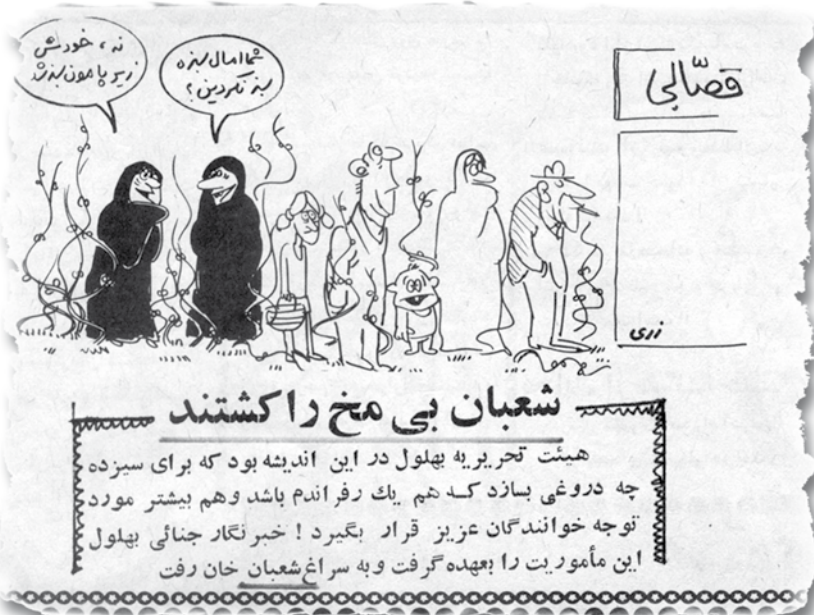 قصّابی
شما امسال سبزه
سبز نکردین؟
نه ، خودش
زیر پامون سبز شد
زری
شعبان بی مخ را کشتند
هیئت تحریریه بهلول در این اندیشه بود که برای سیزده
چه دروغی بسازد که هم یك رفراندم باشد وهم بیشتر مورد
توجه خوانندگان عزیز قرار بگیرد ! خبرنگار جنائی بهلول
این مأموریت را بعهده گرفت وبه سراغ شعبان خان رفت